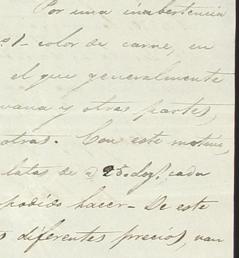 Por una inabertencia
nº 1 - color de carne, en
el que generalmente
vana y otras partes,
otras. Con este motivo,
latas de a 25 doz.s cada
podido hacer - De este
s diferentes precios, van